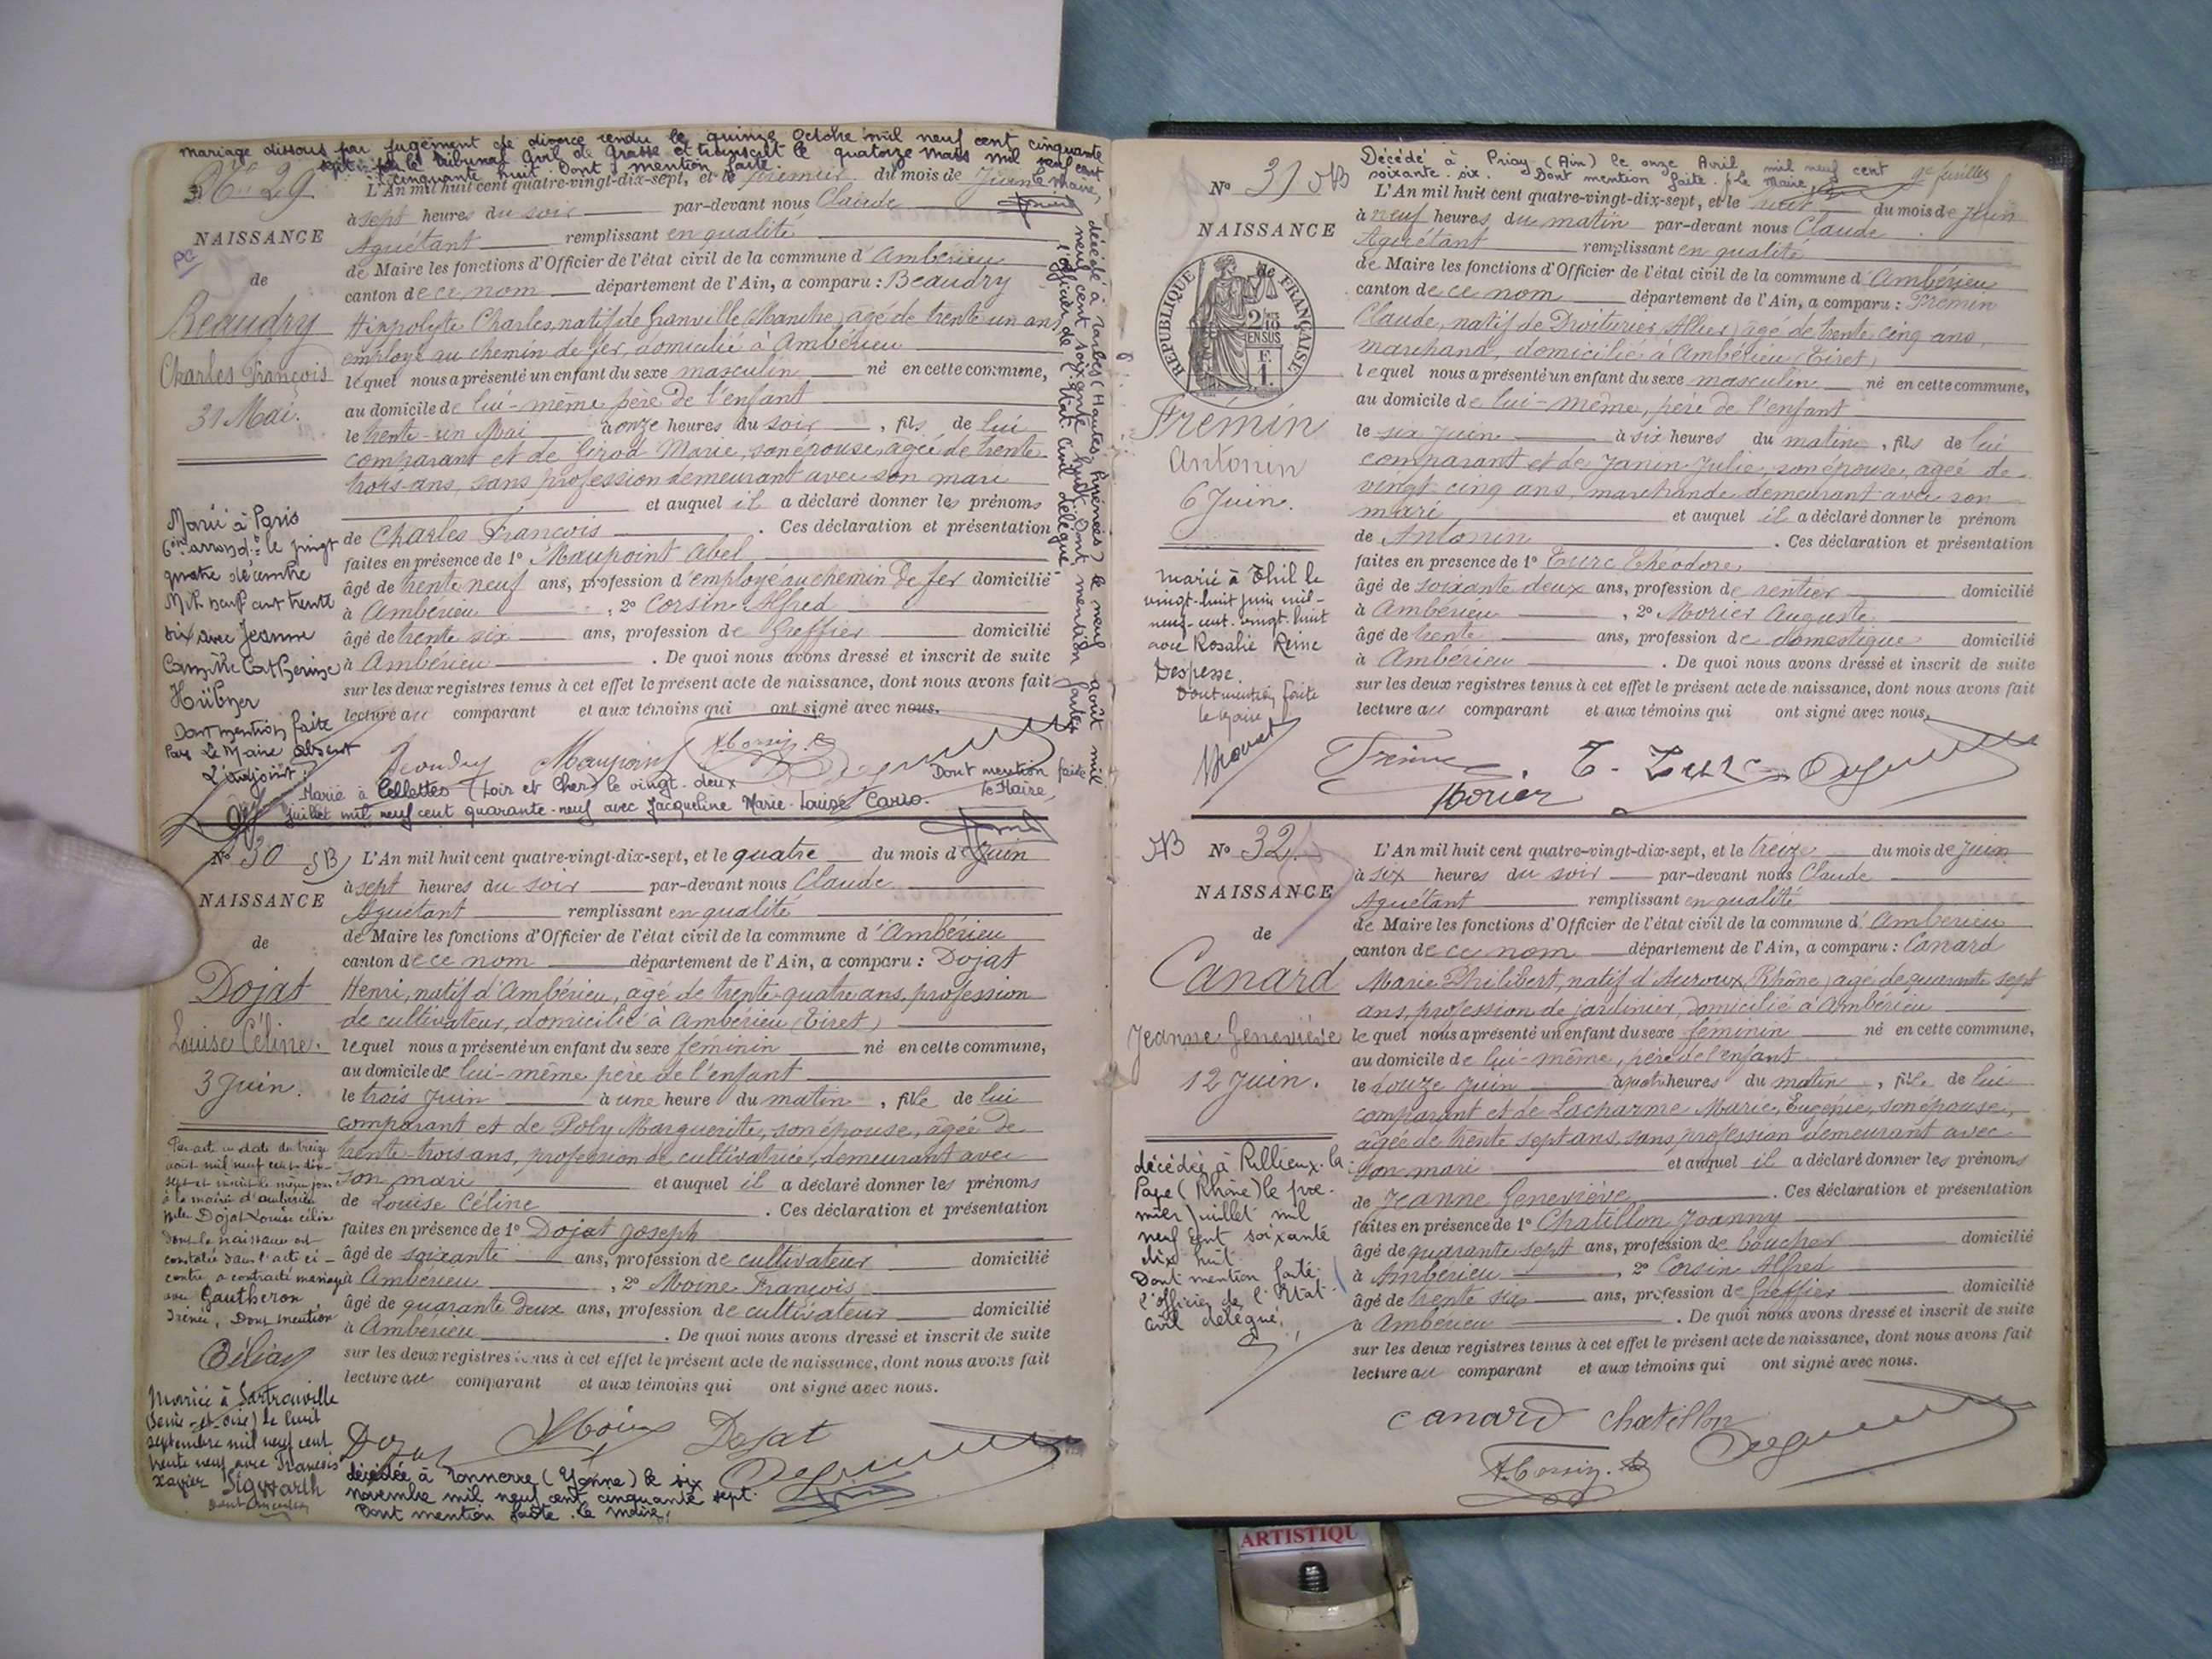 mariage dissous par jugement de divorce rendu le quinze Octobre mil neuf cent cinquante
sept par le Tribunal Civil de Grasse et transcrit le quatorze mars mil neuf cent
cinquante huit. Dont mention faite. le Maire,
No 29
L'An mil huit cent quatre-vingt-dix-sept, et le premier du mois de Juin
à sept heures du soir par-devant nous Claude
NAISSANCE
Aguétant remplissant en qualité
de Maire les fonctions d'Officier de l'état civil de la commune d'Ambérieu
de
canton de ce nom département de l'Ain, a comparu : Beaudry
Beaudry
Hippolyte Charles, natif de Granville (Manche) agé de trente un ans
employé au chemin de fer, domicilié à Ambérieu
Charles François
lequel nous a présenté un enfant du sexe masculin né en cette commune,
au domicile de lui-même père de l'enfant
31 Mai.
le trente-un Mai à onze heures du soir, fils de lui
comparant et de Girod Marie, son épouse, agée de trente
trois ans, sans profession demeurant avec son mari
et auquel il a déclaré donner les prénoms
de Charles François. Ces déclaration et présentation
faites en présence de 1° Maupoint Abel
âgé de trente neuf ans, profession d'employé au chemin de fer domicilié
à Ambérieu, 2° Corsin Alfred
âgé de trente six ans, profession de Greffier domicilié
à Ambérieu. De quoi nous avons dressé et inscrit de suite
sur les deux registres tenus à cet effet le présent acte de naissance, dont nous avons fait
lecture au comparant et aux témoins qui ont signé avec nous.
Marié à Paris
6ème arrondt le vingt
quatre décembre
Mil neuf cent trente
six avec Jeanne
Camille Catherine
Hübner
Dont mention faite
Pour Le Maire absent
L'adjoint :
Beaudry Maupoint
Marié à Cellettes (Loir et Cher) le vingt-deux
Juillet mil neuf cent quarante-neuf avec Jacqueline Marie-Louise Cario.
Dont mention faite
le Maire,
décédé à Tarbes (Hautes Pyrénées) le neuf août mil
neuf cent soixante huit. Dont mention faite
l'officier de l'Etat Civil délégué
No 30
L'An mil huit cent quatre-vingt-dix-sept, et le quatre du mois de Juin
à sept heures du soir par-devant nous Claude
NAISSANCE
Aguétant remplissant en qualité
de
de Maire les fonctions d'Officier de l'état civil de la commune d'Ambérieu
canton de ce nom département de l'Ain, a comparu : Dojat
Dojat
Henri, natif d'Ambérieu, âgé de trente-quatre ans, profession
de cultivateur, domicilié à Ambérieu (Tiret)
Louise Céline.
lequel nous a présenté un enfant du sexe féminin né en cette commune,
au domicile de lui-même père de l'enfant
3 Juin.
le trois Juin à une heure du matin, fille de lui
comparant et de Poly Marguerite, son épouse, âgée de
trente-trois ans, profession de cultivatrice, demeurant avec
son mari et auquel il a déclaré donner les prénoms
de Louise Céline. Ces déclaration et présentation
faites en présence de 1° Dojat Joseph
âgé de soixante ans, profession de cultivateur domicilié
à Ambérieu, 2° Moine François
âgé de quarante deux ans, profession de cultivateur domicilié
à Ambérieu. De quoi nous avons dressé et inscrit de suite
sur les deux registres tenus à cet effet le présent acte de naissance, dont nous avons fait
lecture au comparant et aux témoins qui ont signé avec nous.
Par acte en date du treize
août mil neuf cent dix-
sept et inscrit le même jour
à la mairie d'Ambérieu
Dojat Louise Céline
dont la naissance est
constatée dans l'acte ci-
contre a contracté mariage
avec Gautheron
Irénée, Dont mention
Mariée à Sartrouville
(Seine-et-oise) le huit
septembre mil neuf cent
trente neuf avec François
Xavier Sigwarth
Dont mention
Moine Dojat
décédée à Tonnerre (Yonne) le six
novembre mil neuf cent cinquante sept.
Dont mention faite. Le Maire,
Décédé à Priay (Ain) le onze Avril mil neuf cent
soixante-six. Dont mention faite. le Maire,
9e feuillet
No 31
L'An mil huit cent quatre-vingt-dix-sept, et le du mois de Juin
à neuf heures du matin par-devant nous Claude
NAISSANCE
Aguétant remplissant en qualité
de Maire les fonctions d'Officier de l'état civil de la commune d'Ambérieu
canton de ce nom département de l'Ain, a comparu : Frémin
RÉPUBLIQUE FRANÇAISE
2/10 EN SUS
Claude, natif de Droiturier (Allier) âgé de trente cinq ans,
marchand, domicilié à Ambérieu (Tiret)
lequel nous a présenté un enfant du sexe masculin né en cette commune,
au domicile de lui-même, père de l'enfant
Frémin
Antonin
6 Juin.
le six Juin à six heures du matin, fils de lui
comparant et de Janin Julie, son épouse, agée de
vingt-cinq ans, marchande demeurant avec son
mari et auquel il a déclaré donner le prénom
de Antonin. Ces déclaration et présentation
faites en présence de 1° Turc Théodore
âgé de soixante deux ans, profession de rentier domicilié
à Ambérieu, 2° Morier Auguste
âgé de trente ans, profession de domestique domicilié
à Ambérieu. De quoi nous avons dressé et inscrit de suite
sur les deux registres tenus à cet effet le présent acte de naissance, dont nous avons fait
lecture au comparant et aux témoins qui ont signé avec nous.
Marié à Thil le
vingt-huit juin mil-
neuf-cent-vingt-huit
avec Rosalie Reine
Despesse.
Dont mention faite
le Maire
T. Turc
Morier
No 32
L'An mil huit cent quatre-vingt-dix-sept, et le treize du mois de Juin
à six heures du soir par-devant nous Claude
NAISSANCE
Aguétant remplissant en qualité
de
de Maire les fonctions d'Officier de l'état civil de la commune d'Ambérieu
canton de ce nom département de l'Ain, a comparu : Canard
Canard
Marie Philibert, natif d'Auroux (Rhône) agé de quarante sept
ans, profession de jardinier, domicilié à Ambérieu
Jeanne Geneviève
lequel nous a présenté un enfant du sexe féminin né en cette commune,
au domicile de lui-même, père de l'enfant
12 Juin.
le douze Juin à quatre heures du matin, fille de lui
comparant et de Lacharme Marie Eugénie, son épouse,
âgée de trente sept ans, sans profession demeurant avec
son mari et auquel il a déclaré donner les prénoms
de Jeanne Geneviève. Ces déclaration et présentation
faites en présence de 1° Chatillon Joanny
âgé de quarante sept ans, profession de boucher domicilié
à Ambérieu, 2° Corsin Alfred
âgé de trente six ans, profession de Greffier domicilié
à Ambérieu. De quoi nous avons dressé et inscrit de suite
sur les deux registres tenus à cet effet le présent acte de naissance, dont nous avons fait
lecture au comparant et aux témoins qui ont signé avec nous.
décédée à Rillieux-la-
Pape (Rhône) le pre-
mier Juillet mil
neuf cent soixante
dix huit.
Dont mention faite.
l'officier de l'Etat
civil délégué,
Canard Chatillon
A. Corsin
ARTISTIQU